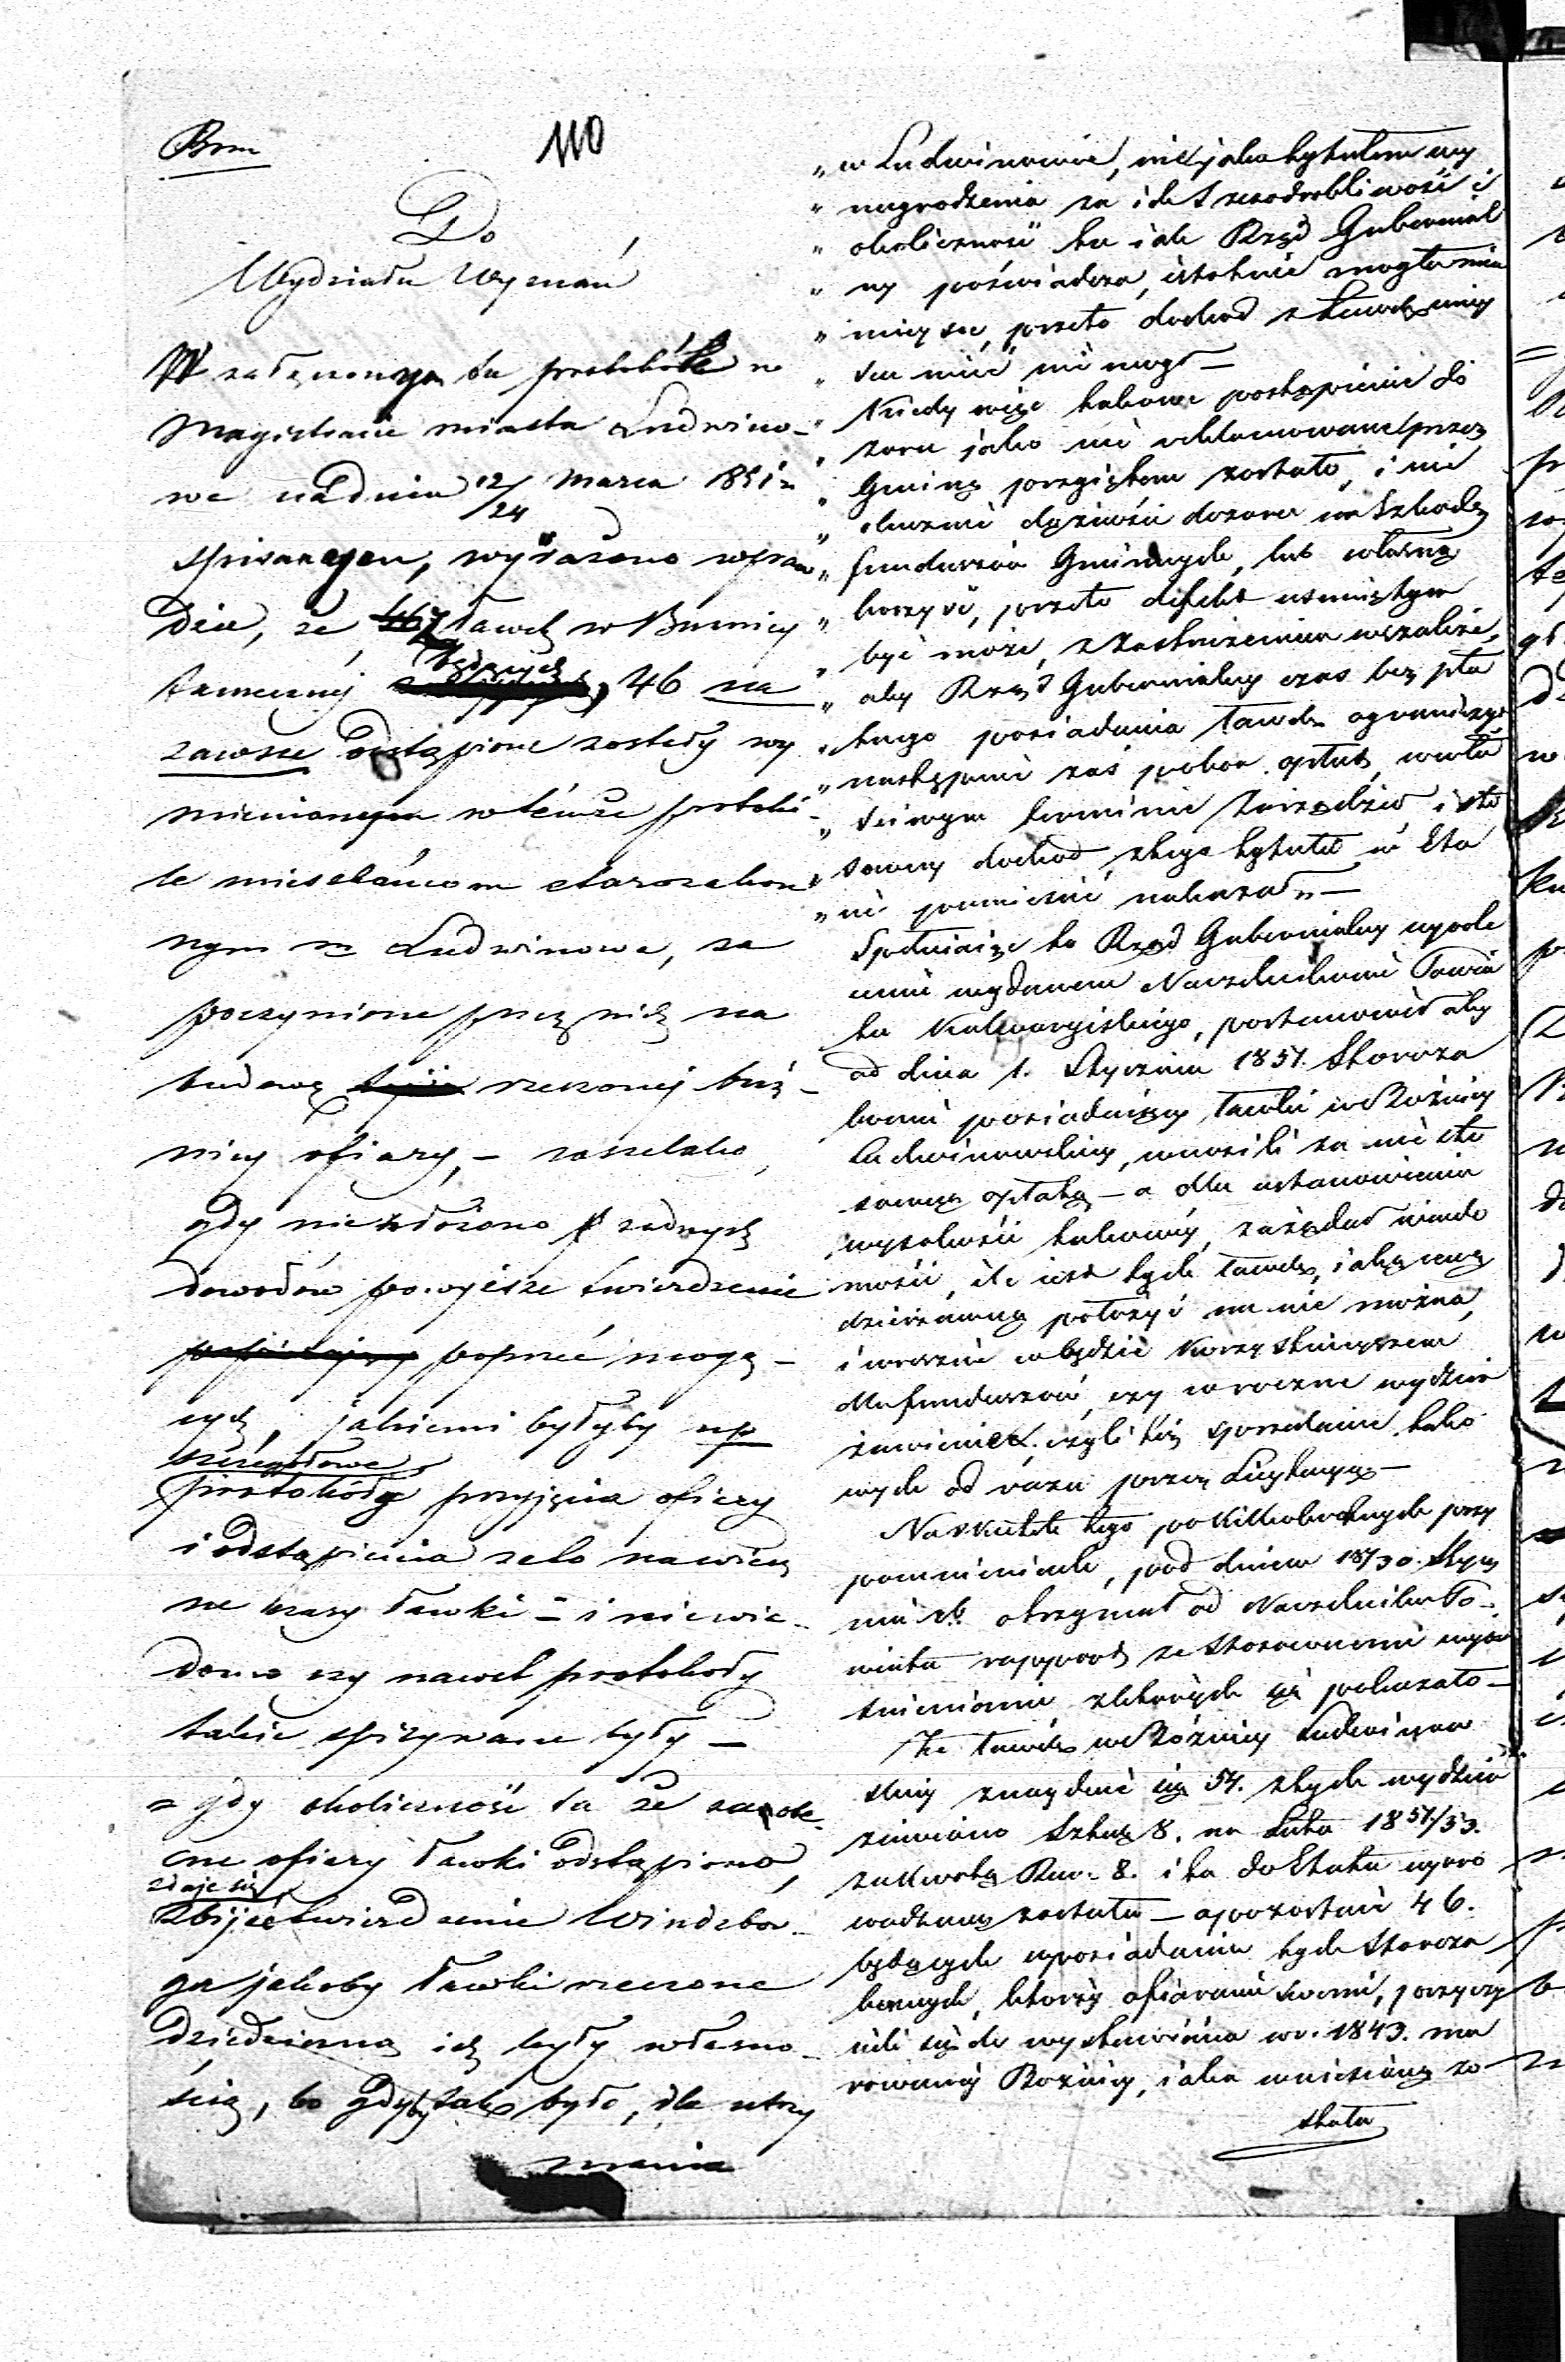 Brm
110
Do
Wydziału Wyznań
W załączonym tu protokóle w
Magistracie miasta Ludwino-
wa na dniu 12/24 Marca 1851 r
spisanym, wyrażono wpraw
dzie, że ławek w Bużnicy
tamecznej będących, 46 na
zawsze odstąpione zostały wy
mienionym w témże protokó-
le mieszkańcom starozakon
nym m Ludwinowa, za
poczynione przez nich na
budowę rzeczonej buż-
nicy ofiary, – wszelako,
gdy nie złożono żadnych
dowodów powyższe twierdzenie
poprzeć mogą-
cych, jakiemi byłyby np
szczegółowe
protokóły przyjęcia ofiary
i odstąpienia za to na wiecz
ne czasy ławki – i niewia-
domo czy nawet protokoły
takie spisywane były –
= gdy okoliczność ta że za
ofiary ławki odstąpiono,
zdaje się
zbijać twierdzenie Windsbor-
ga jakoby ławki rzeczone
dziedziczną ich były własno-
ścią, bo gdyby tak było, dla utrzy
mania
„ w Ludwinowie, niejako tytułem wy
„ nagrodzenia za ich szczodrobliwość i
„ okoliczność ta jak Rząd Gubernial
„ ny poświadcza, istotnie mogła mieć
„ miejsce, przeto dochód z ławek miej
„ sca mieć nie mógł –
„ Kiedy więc takowe postąpienie do
„ zoru jako nie reklamowane przez
„ Gminę przyjętem zostało, i nie
„ okazuje dążności dozoru na szkodę
„ funduszów Gminnych, lub własną
„ korzyść, przeto defekt usuniętym
„ być może, z zastrzeżeniem wszakże,
„ aby Rząd Gubernialny czas bez pła
„ tnego posiadania ławek ograniczył
„ następnie zaś pobór opłat, w wła
„ ściwym terminie zarządził, i sto
„ sowny dochód z tego tytułu w Eta
„ cie pomieścić nakazał „ –
Spełniając to Rząd Gubernialny w pole
ceniu wydanem Naczelnikowi Powia
tu Kalwaryjskiego, postanowił aby
od dnia 1. Stycznia 1851. Staroza
konni posiadający ławki w Bóżnicy
Ludwinowskiey, wnosili za nie sto
sowną opłatę – a dla ustanowienia
wysokości takowéy, zażądał wiado
mości, ile jest tych ławek, jaką cenę
dzierżawną położyć na nie można,
i wreszcie co będzie korzystnieyszem
dla funduszów, czy w roczne wydzier
żawienie czyli też sprzedanie tako
wych od razu przez Licytacyą –
Naskutek tego po kilkokrotnych przy
pomnieniach, pod dniem 18/30. Stycz
nia rb. otrzymał od Naczelnika Po-
wiatu rapport ze stosownemi wyja
śnieniami, z których się pokazało –
Że ławek w Bóżnicy Ludwinow
skiej znayduje się 54. z tych wydzier
żawiono sztuk 8. na Lata 1851/53.
za kwotę Rsr. 8. i ta do Etatu wpro
wadzoną została – a pozostałe 46.
będących w posiadaniu tych Staroza
konnych, którzy ofiarami swemi, przyczy
nili się do wystawienia w r. 1843. mu
rowanej Bożnicy, jaka wniesioną zo
stała